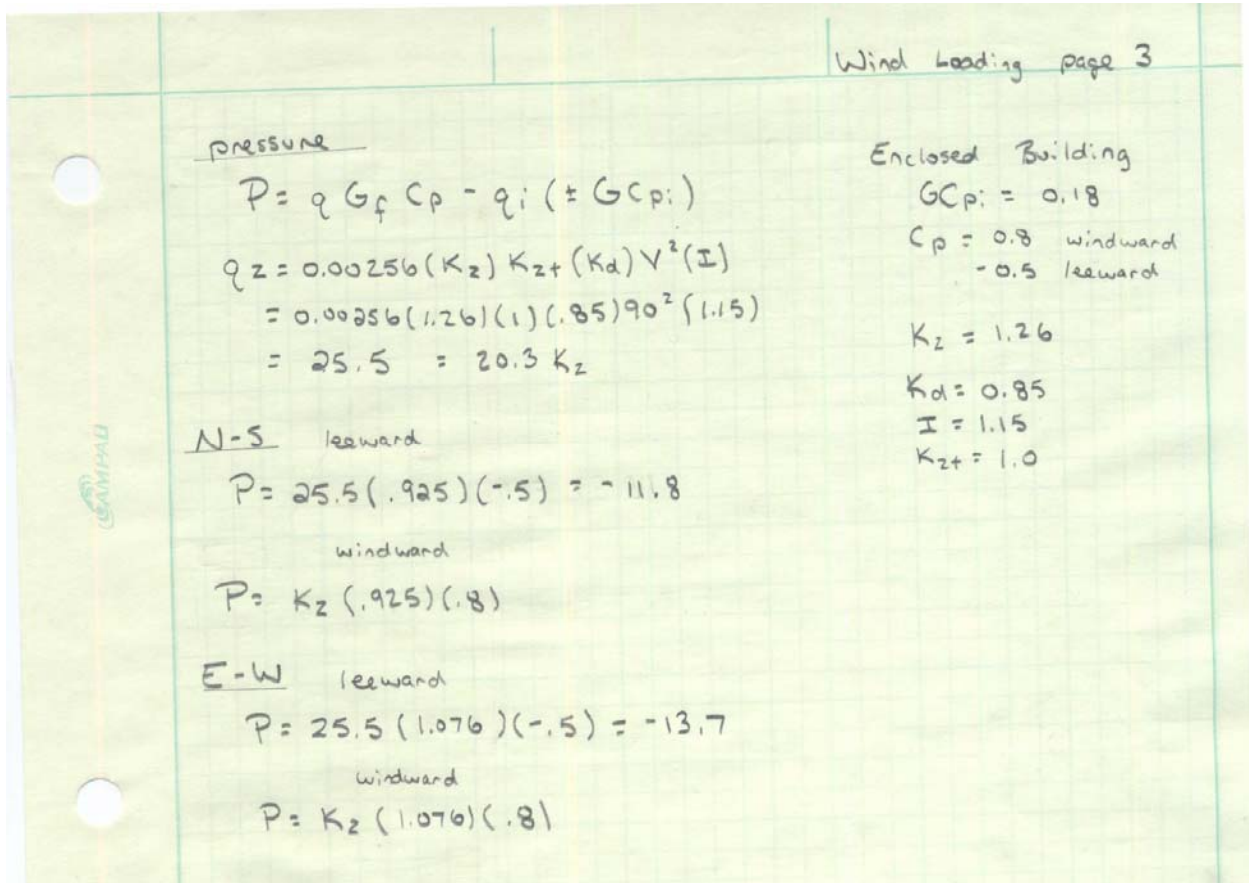 Wind Loading page 3
pressure
P = q Gf Cp - qi (± GCpi)
qz = 0.00256 (Kz) Kzt (Kd) V² (I)
= 0.00256 (1.26) (1) (.85) 90² (1.15)
= 25.5 = 20.3 Kz
N-S leeward
P = 25.5 (.925) (-.5) = -11.8
windward
P = Kz (.925) (.8)
E-W leeward
P = 25.5 (1.076) (-.5) = -13.7
windward
P = Kz (1.076) (.8)
Enclosed Building
GCpi = 0.18
Cp = 0.8 windward
-0.5 leeward
Kz = 1.26
Kd = 0.85
I = 1.15
Kzt = 1.0
CAMPAD